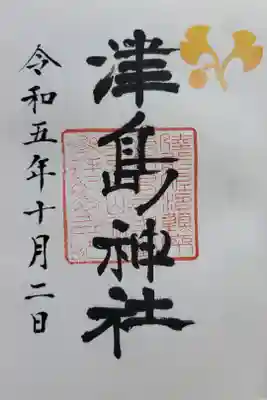 津島神社
令和五年十月二日